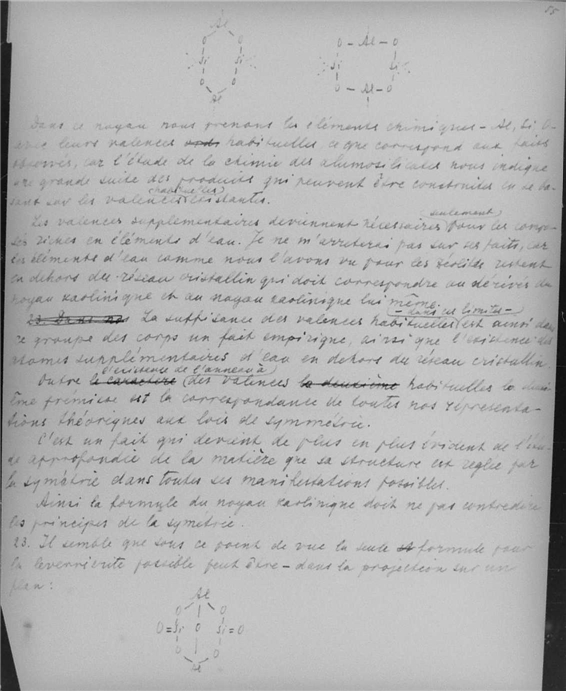 55
Al
O O
Si Si
O O
Al
O - Al - O
Si Si
O - Al - O
Dans ce noyau nous prenons les éléments chimiques - Al, Si, O
avec leurs valences habituelles, ce que correspond aux faits
observés, car l'étude de la chimie des alumosilicates nous indique
une grande suite des produits qui peuvent être construites en se ba-
sant sur les valences habituelles existantes.
Les valences supplementaires deviennent nécessaires seulement pour les compo-
sés riches en éléments d'eau. Je ne m'arreterai pas sur ses faits, car
les éléments d'eau comme nous l'avons vu pour les zéolites restent
en dehors du réseau cristallin qui doit correspondre au dérivés du
noyau kaolinique et au noyau kaolinique lui même.
La suffisance des valences habituelles - dans ces limites - est ainsi dans
ce groupe des corps un fait empirique, ainsi que l'existence des
atomes supplémentaires d'eau en dehors du réseau cristallin.
Outre le caractère d'existence de l'anneau à des valences la deuxième habituelles la deux-
ième prémisse est la correspondance de toutes nos représenta-
tions théoriques aux lois de symmétrie.
C'est un fait qui devient de plus en plus évident de l'étu-
de approfondie de la matière que sa structure est reglée par
la symétrie dans toutes ses manifestations possibles.
Ainsi la formule du noyau kaolinique doit ne pas contredire
les principes de la symetrie.
23. Il semble que sous ce point de vue la seule formule pour
la leverrierite possible peut être - dans la projection sur un
plan:
Al
O O
O=Si O Si=O
O O
Al